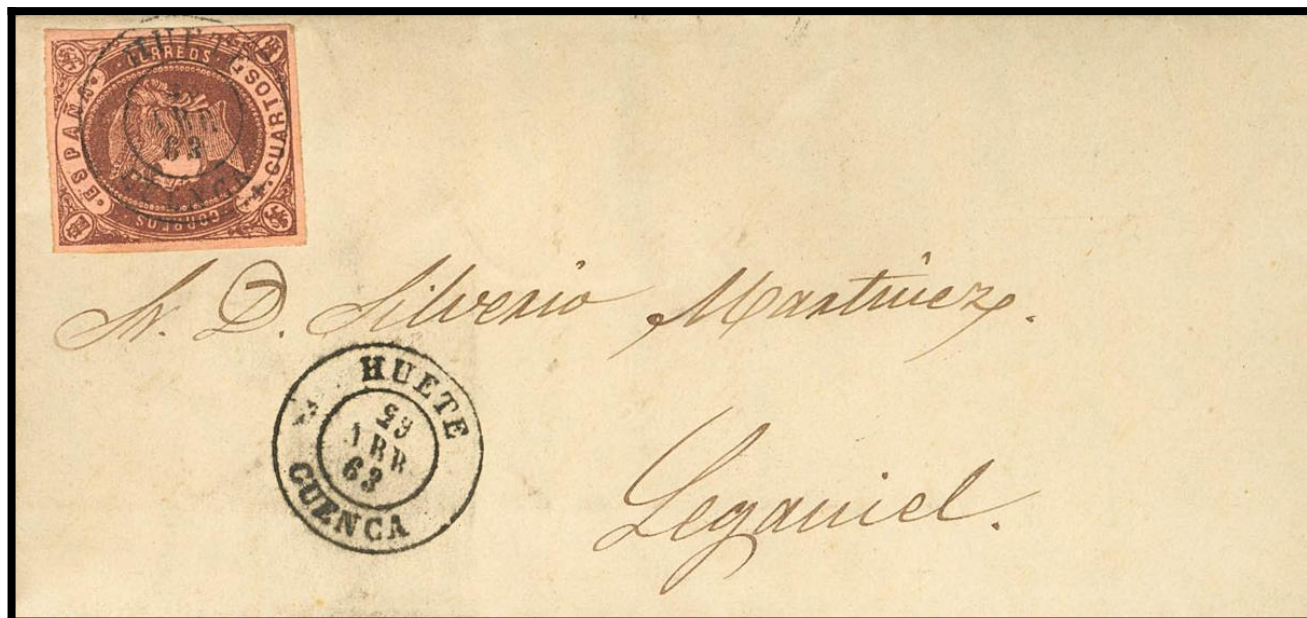 CORREOS
ESPAÑA
4 CUARTOS
CORREOS
ABR
63
Sr. D. Silverio Martinez.
HUETE
ABR
63
CUENCA
Leganiel.